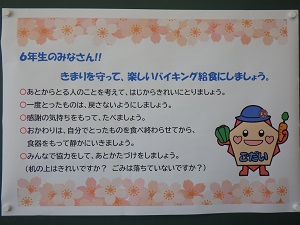 6年生のみなさん!!
きまりを守って、楽しいバイキング給食にしましょう。
○あとからとる人のことを考えて、はじからきれいにとりましょう。
○一度とったものは、戻さないようにしましょう。
○感謝の気持ちをもって、たべましょう。
○おかわりは、自分でとったものを食べ終わらせてから、
食器をもって静かにいきましょう。
○みんなで協力をして、あとかたづけをしましょう。
（机の上はきれいですか？ ごみは落ちていないですか？）
こだい